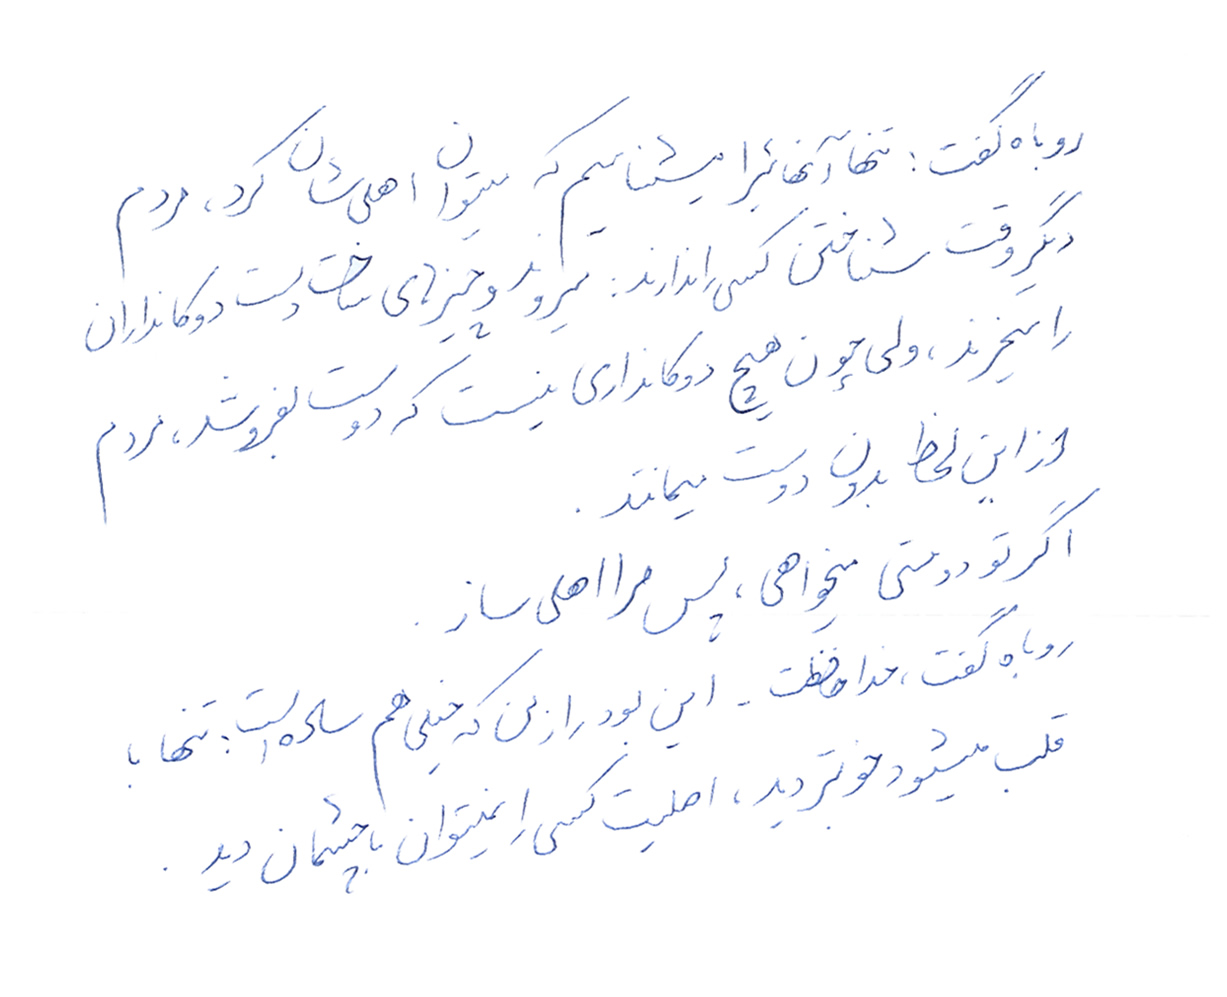 روباه گفت: تنها آنهائیرا میشناسیم که میتوان اهلی‌شان کرد، مردم
دیگر وقت شناختن کسی را ندارند: میروند و چیزهای ساخت دست دوکانداران
را میخرند، ولی چون هیچ دوکانداری نیست که دوست بفروشد، مردم
از این لحاظ بدون دوست میمانند.
اگر تو دوستی میخواهی، پس مرا اهلی ساز.
روباه گفت، خدا حافظت - این بود راز من که خیلی هم ساده است: تنها با
قلب میشود خوبتر دید، اصلیت کسی را نمیتوان با چشمان دید.